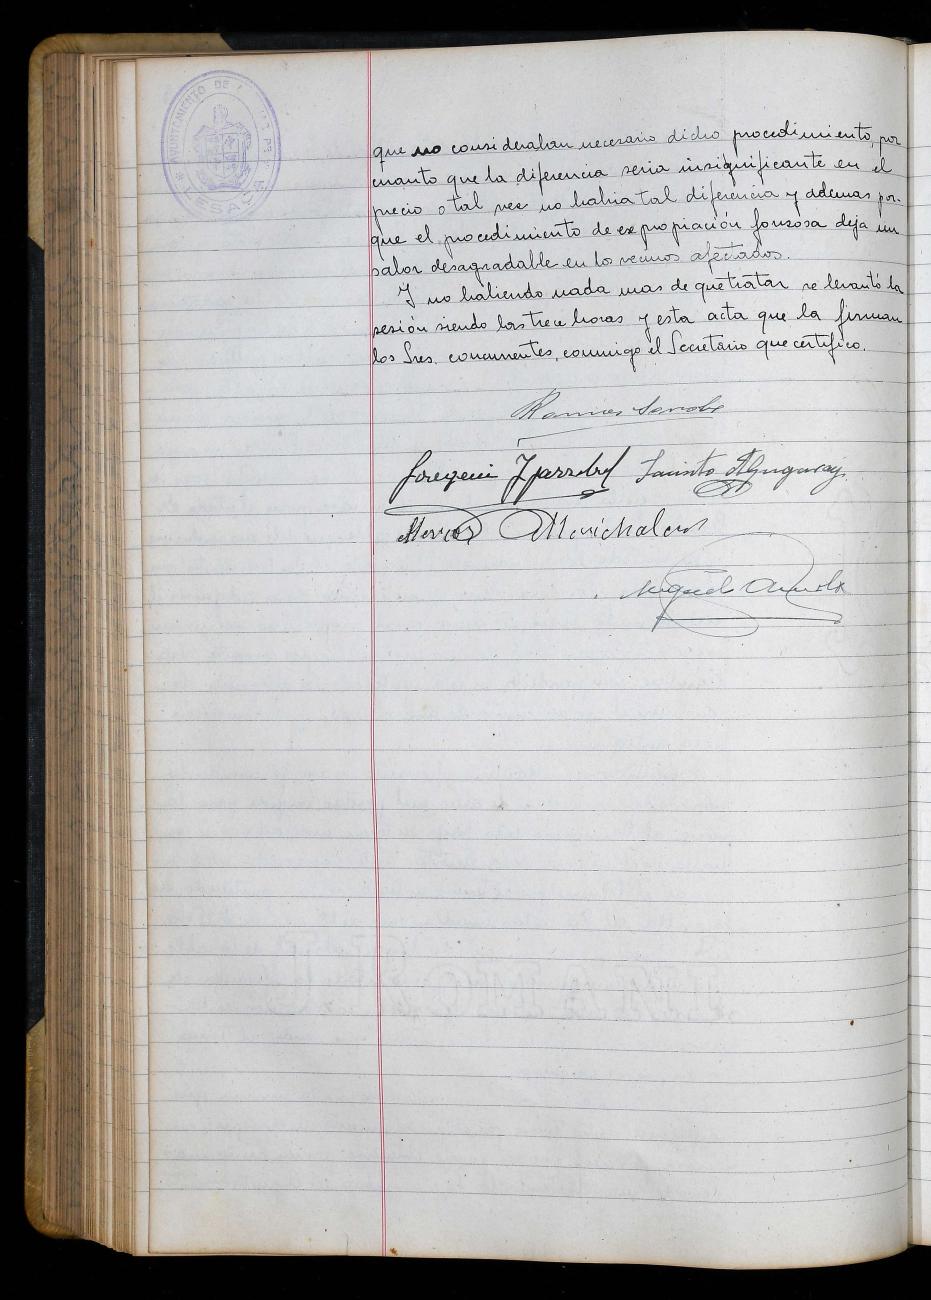 AYUNTAMIENTO DE
LESACA
que no consideraban necesario dicho procedimiento, por
cuanto que la diferencia seria insignificante en el
precio o tal vez no habia tal diferencia y ademas por-
que el procedimiento de expropiación forzosa deja un
sabor desagradable en los vecinos afectados.
Y no habiendo nada mas de que tratar se levantó la
sesión siendo las trece horas y esta acta que la firman
los Sres. concurrentes, conmigo el Secretario que certifico.
Fausto
Marcos Marichalar
Miguel